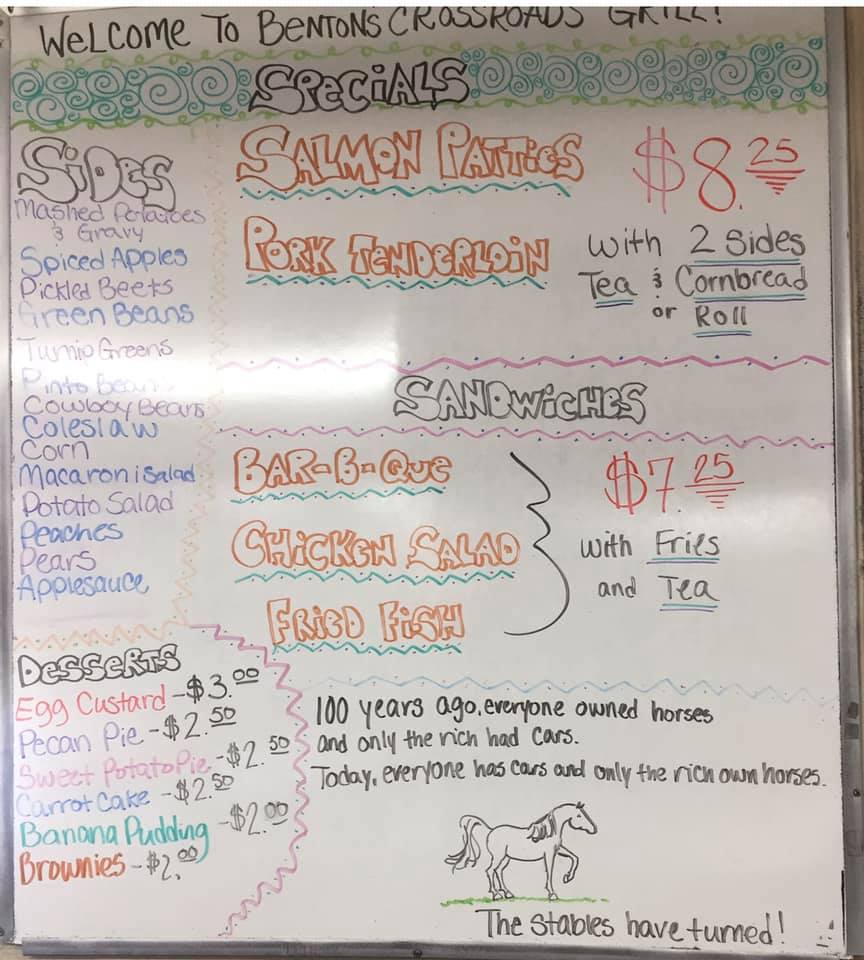 WELCOME TO BENTONS CROSSROADS GRILL!
SPECIALS
SIDES
Mashed Potatoes
& Gravy
Spiced Apples
Pickled Beets
Green Beans
Turnip Greens
Pinto Bean
Cowboy Beans
Coleslaw
Corn
Macaroni Salad
Potato Salad
Peaches
Pears
Applesauce
SALMON PATTIES
PORK TENDERLOIN
$8.25
with 2 Sides
Tea & Cornbread
or Roll
SANDWICHES
BAR-B-QUE
CHICKEN SALAD
FRIED FISH
$7.25
with Fries
and Tea
DESSERTS
Egg Custard - $3.00
Pecan Pie - $2.50
Sweet Potato Pie - $2.50
Carrot Cake - $2.50
Banana Pudding - $2.00
Brownies - $2.00
100 years ago, everyone owned horses
and only the rich had cars.
Today, everyone has cars and only the rich own horses.
The stables have turned!